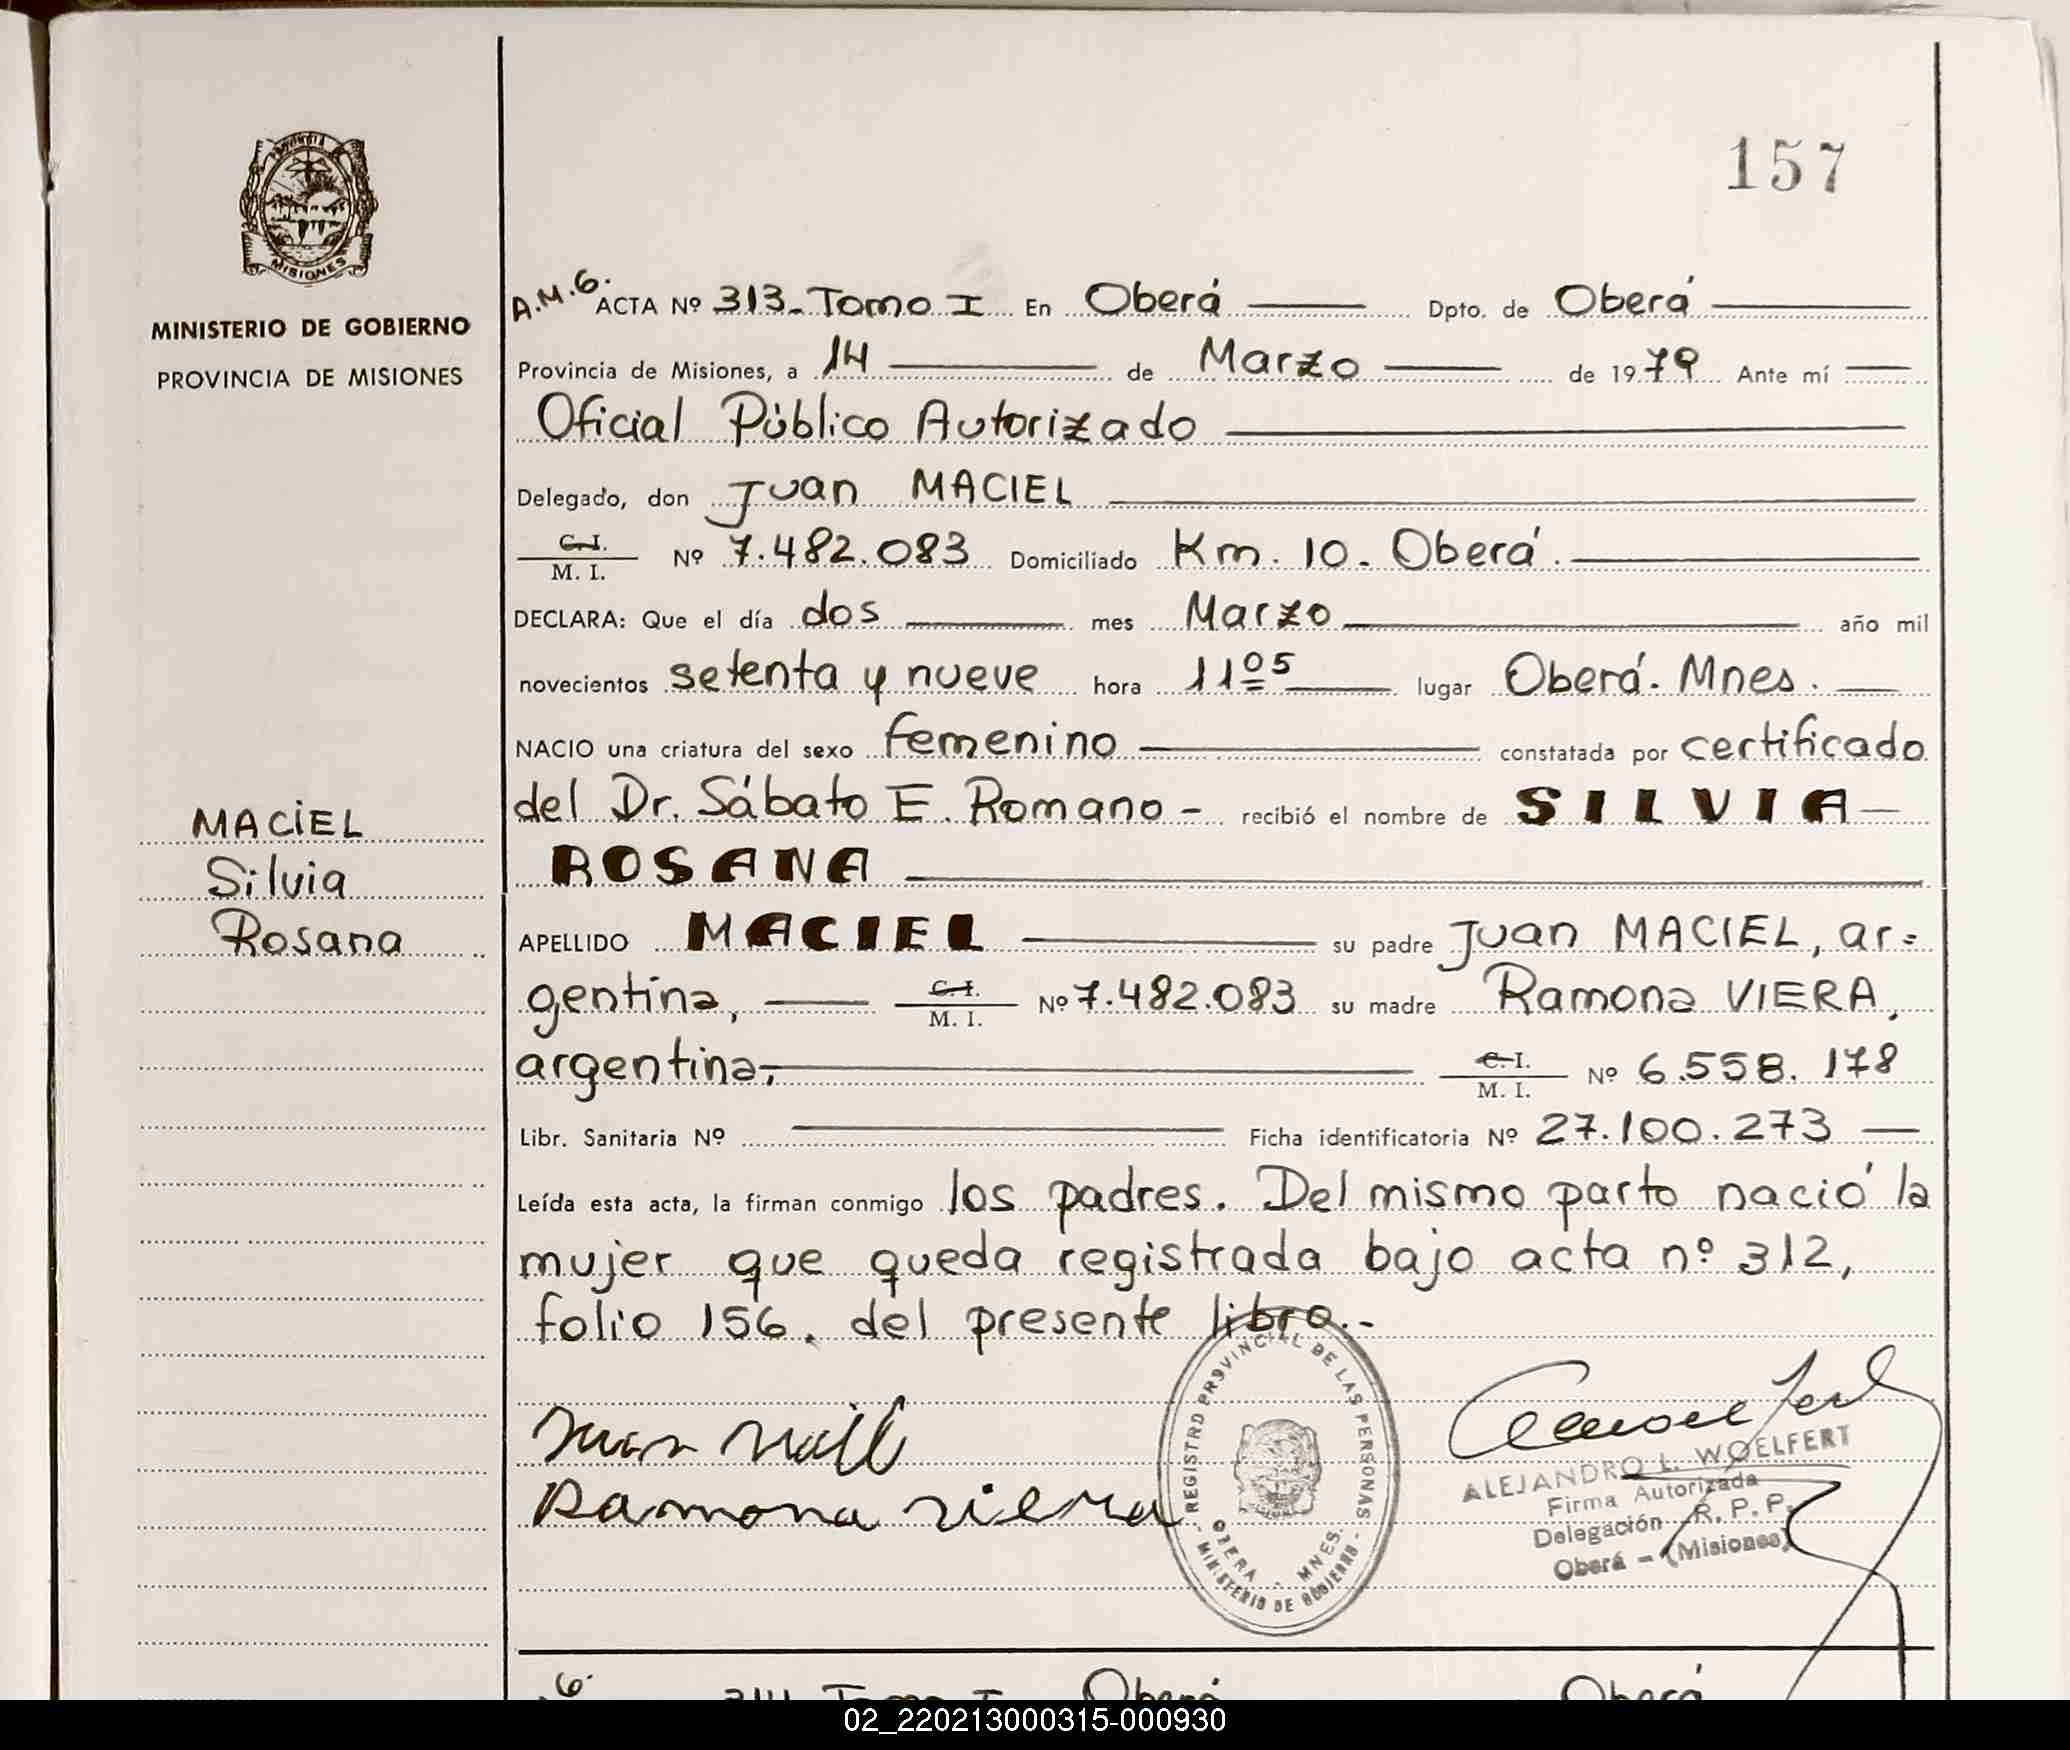 157
PROVINCIA
MISIONES
MINISTERIO DE GOBIERNO
PROVINCIA DE MISIONES
A.M.G. ACTA Nº 313-Tomo I En Oberá Dpto. de Oberá
Provincia de Misiones, a 14 de Marzo de 1979 Ante mí
Oficial Público Autorizado
Delegado, don Juan MACIEL
C.I.
M. I. Nº 7.482.083 Domiciliado Km. 10. Oberá.
DECLARA: Que el día dos mes Marzo año mil
novecientos setenta y nueve hora 11 05 lugar Oberá. Mnes.
NACIO una criatura del sexo femenino constatada por certificado
del Dr. Sábato E. Romano - recibió el nombre de SILVIA
ROSANA
MACIEL
Silvia
Rosana
APELLIDO MACIEL su padre Juan MACIEL, ar=
gentina, C.I. M. I. Nº 7.482.083 su madre Ramona VIERA,
argentina, C.I. M. I. Nº 6.558.178
Libr. Sanitaria Nº Ficha identificatoria Nº 27.100.273
Leída esta acta, la firman conmigo los padres. Del mismo parto nació la
mujer que queda registrada bajo acta nº 312,
folio 156. del presente libro.-
Ramona viera
REGISTRO PROVINCIAL DE LAS PERSONAS
OBERA - MNES.
MINISTERIO DE GOBIERNO
ALEJANDRO L. WOELFERT
Firma Autorizada
Delegación R. P. P.
Oberá - (Misiones)
314 Tomo I Oberá Oberá
02_220213000315-000930